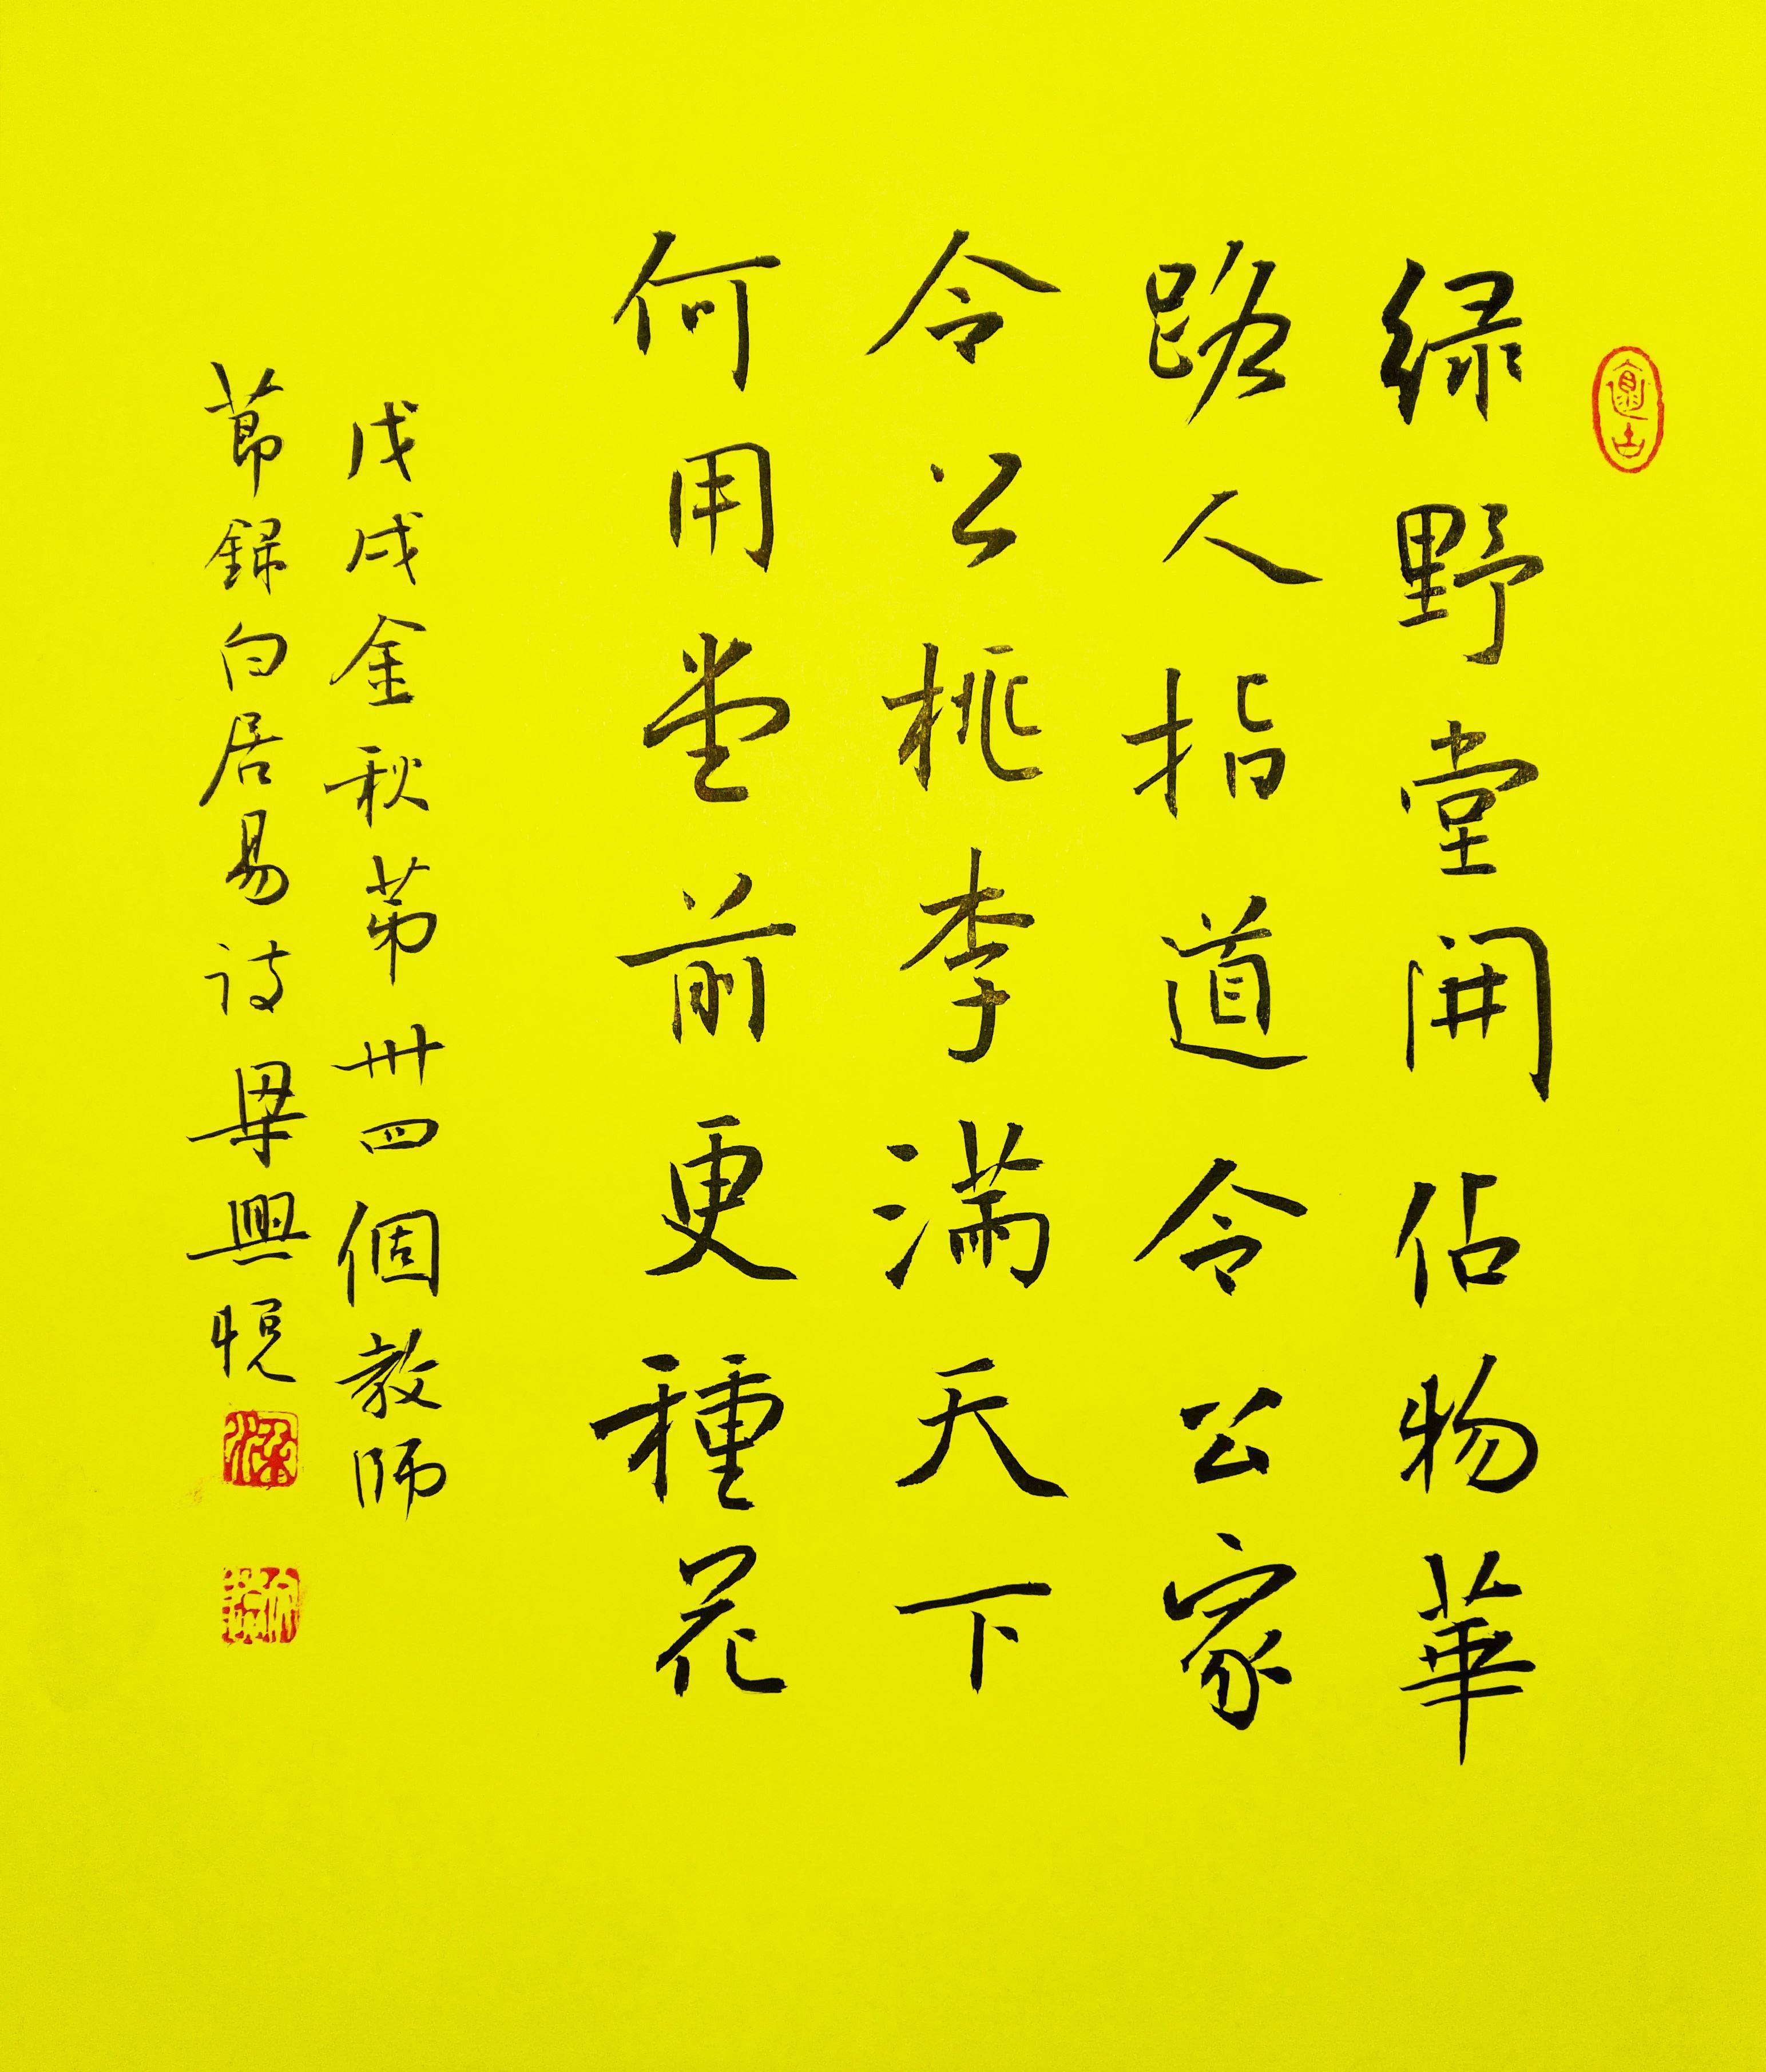 绿野堂開佔物華
路人指道令公家
令公桃李滿天下
何用堂前更種花
戊戌金秋第卅四個教師
節錄白居易诗梁興悅